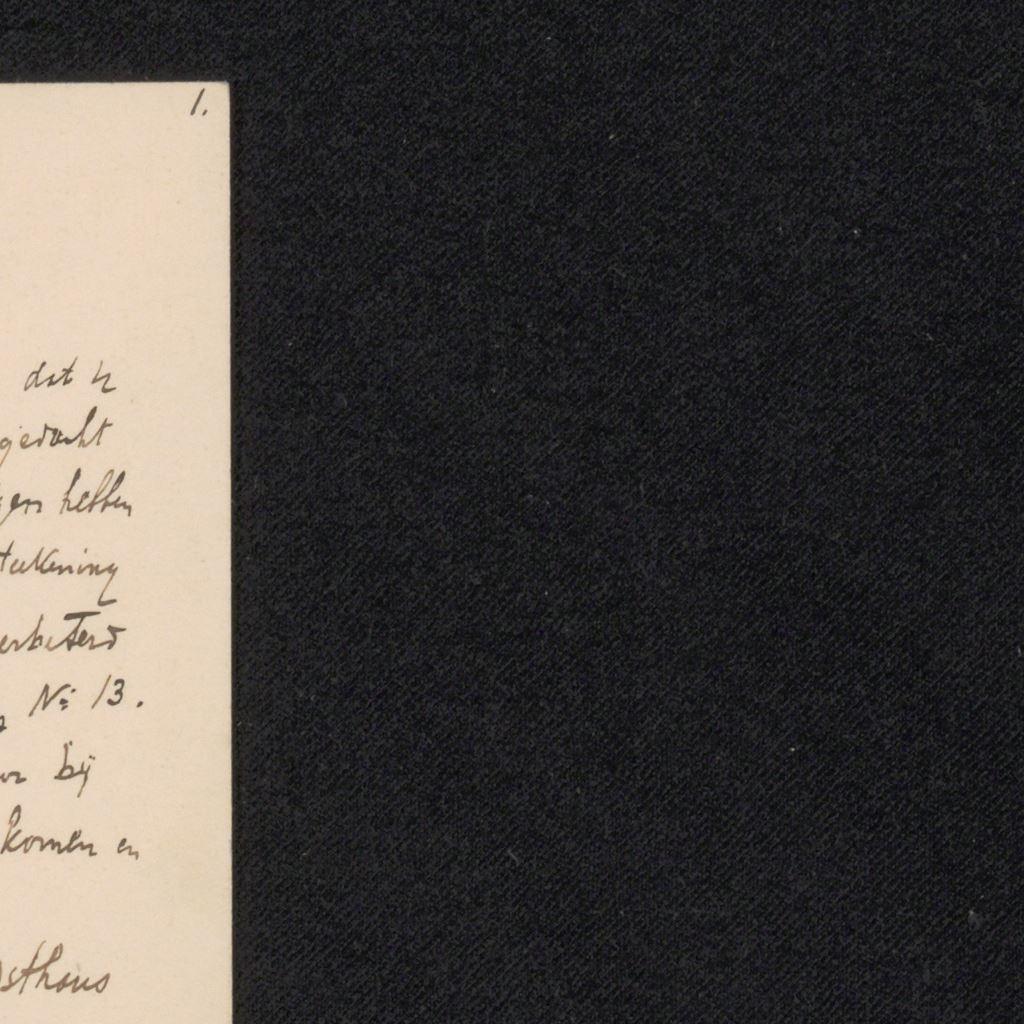 1.
dat U
gedacht
gen hebben
teekening
erbeterd
No 13.
bij
komen en
sthaus